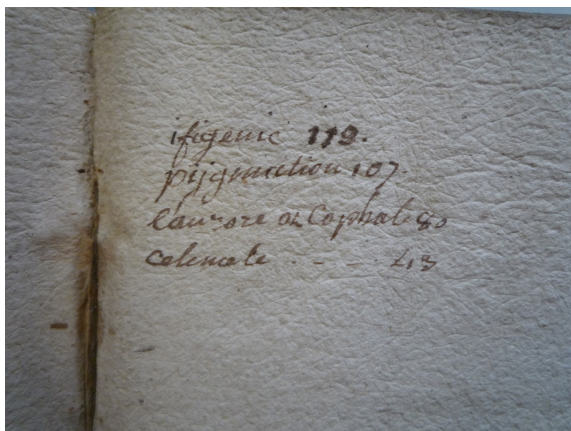 ifigenie 119.
pijgmaction 107.
l'aurore et Cephal 80
celimate . - - 43